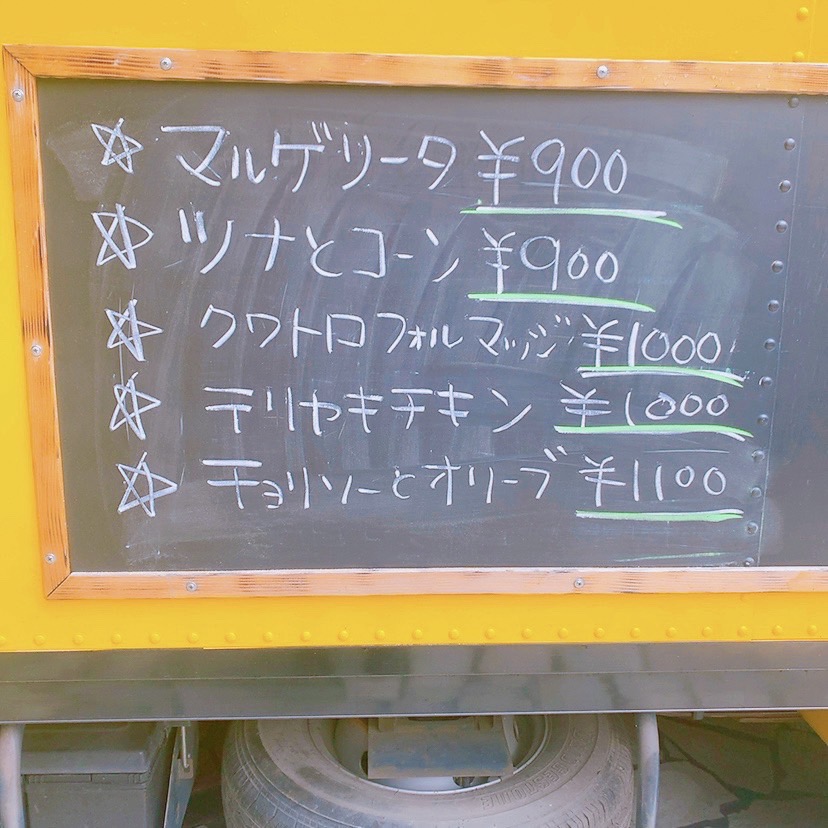 ☆ マルゲリータ ¥900
☆ ツナとコーン ¥900
☆ クワトロフォルマッジ ¥1000
☆ テリヤキチキン ¥1000
☆ チョリソーとオリーブ ¥1100